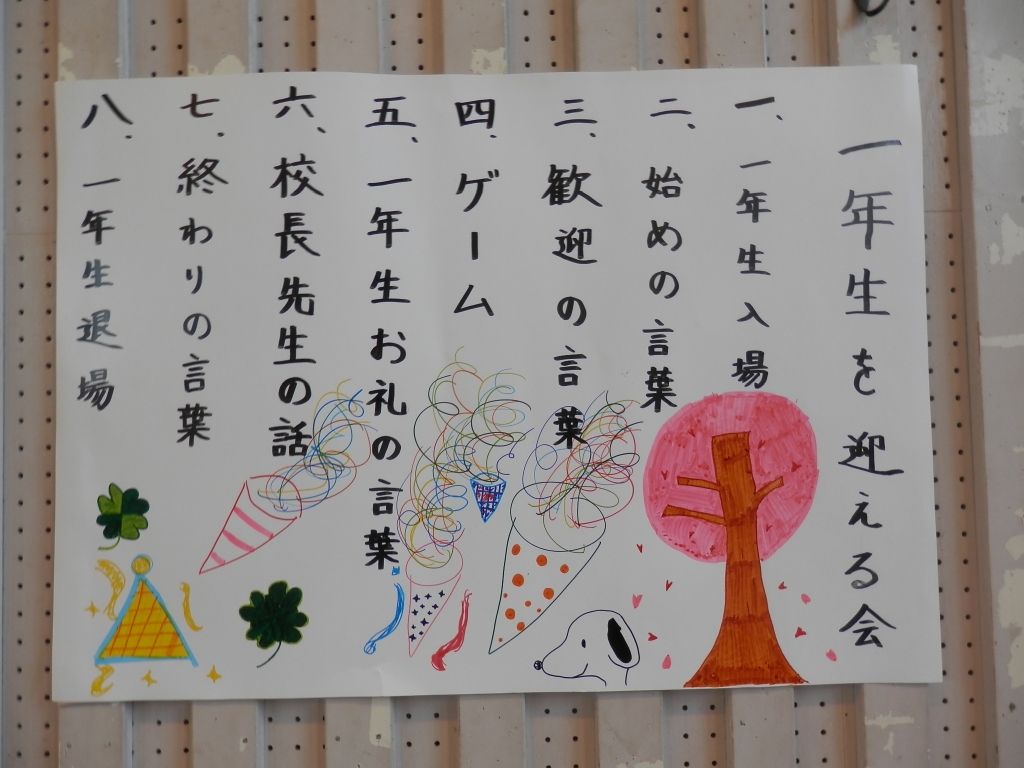 一年生を迎える会
一、一年生入場
二、始めの言葉
三、歓迎の言葉
四、ゲーム
五、一年生お礼の言葉
六、校長先生の話
七、終わりの言葉
八、一年生退場